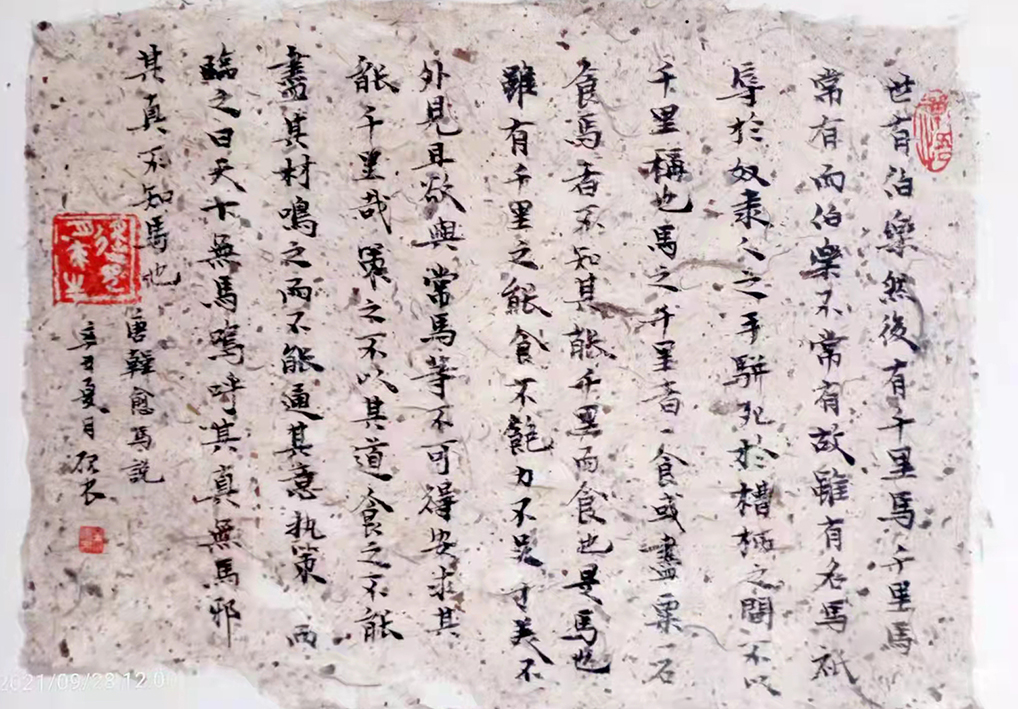 世有伯樂然後有千里馬千里馬
常有而伯樂不常有故雖有名馬祇
辱於奴隶人之手駢死於槽櫪之間不以
千里稱也馬之千里者一食或盡粟一石
食馬者不知其能千里而食也是馬也
雖有千里之能食不飽力不足才美不
外見且欲與常馬等不可得安求其
能千里哉策之不以其道食之不能
盡其材鳴之而不能通其意执策而
臨之曰天下無馬嗚呼其真無馬邪
其真不知馬也
唐韓愈馬説
辛丑夏月
2021/09/28 12:0